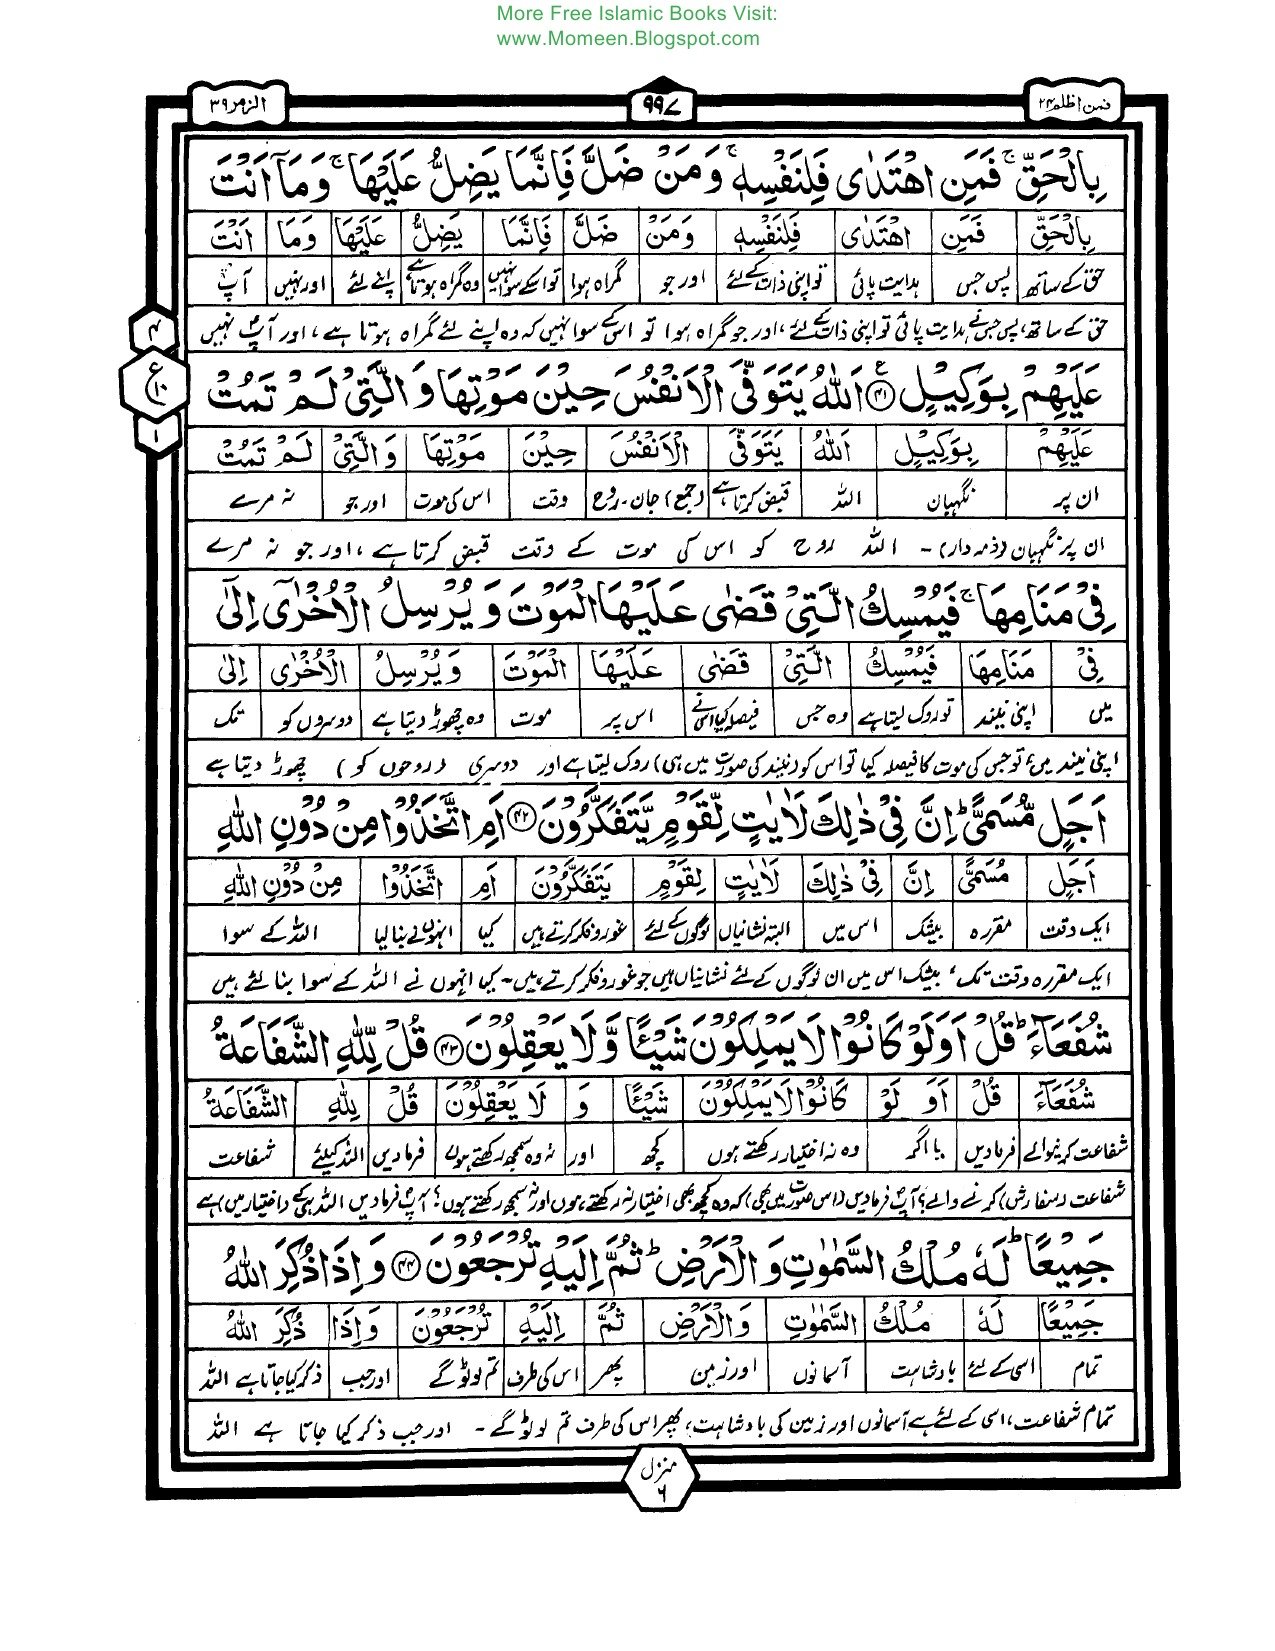 More Free Islamic Books Visit:
www.Momeen.Blogspot.com
الزمر ۳۹
۹۹۷
فمن اظلم ۲۴
بِالْحَقِّ ۚ فَمَنِ اهْتَدٰى فَلِنَفْسِهٖ ۚ وَمَنْ ضَلَّ فَاِنَّمَا يَضِلُّ عَلَيْهَا ۚ وَمَآ اَنْتَ
بِالْحَقِّ فَمَنِ اهْتَدٰى فَلِنَفْسِهٖ وَمَنْ ضَلَّ فَاِنَّمَا يَضِلُّ عَلَيْهَا وَمَا اَنْتَ
حق کے ساتھ پس جس ہدایت پائی تو اپنی ذات کے لئے اور جو گمراہ ہوا تو اسکے سوا نہیں وہ گمراہ ہوتا ہے اپنے لئے اور نہیں آپ
حق کے ساتھ، پس جس نے ہدایت پائی تو اپنی ذات کے لئے، اور جو گمراہ ہوا تو اس کے سوا نہیں کہ وہ اپنے لئے گمراہ ہوتا ہے، اور آپ نہیں
۴
ع
۱۰
۱
عَلَيْهِمْ بِوَكِيْلٍ ۴۱ اَللّٰهُ يَتَوَفَّى الْاَنْفُسَ حِيْنَ مَوْتِهَا وَالَّتِيْ لَمْ تَمُتْ
عَلَيْهِمْ بِوَكِيْلٍ اَللّٰهُ يَتَوَفَّى الْاَنْفُسَ حِيْنَ مَوْتِهَا وَالَّتِيْ لَمْ تَمُتْ
ان پر نگہبان اللہ قبض کرتا ہے (جمع) جان۔ روح وقت اس کی موت اور جو نہ مرے
ان پر نگہبان (ذمہ دار) ۔ اللہ روح کو اس کی موت کے وقت قبض کرتا ہے، اور جو نہ مرے
فِيْ مَنَامِهَا ۚ فَيُمْسِكُ الَّتِيْ قَضٰى عَلَيْهَا الْمَوْتَ وَيُرْسِلُ الْاُخْرٰٓى اِلٰٓى
فِيْ مَنَامِهَا فَيُمْسِكُ الَّتِيْ قَضٰى عَلَيْهَا الْمَوْتَ وَيُرْسِلُ الْاُخْرٰٓى اِلٰٓى
میں اپنی نیند تو روک لیتا ہے وہ جس فیصلہ کیا اس نے اس پر موت وہ چھوڑ دیتا ہے دوسروں کو تک
اپنی نیند میں، تو جس کی موت کا فیصلہ کیا تو اس کو (نیند کی صورت میں ہی) روک لیتا ہے اور دوسری (روحوں کو) چھوڑ دیتا ہے
اَجَلٍ مُّسَمًّى ۭ اِنَّ فِيْ ذٰلِكَ لَاٰيٰتٍ لِّقَوْمٍ يَّتَفَكَّرُوْنَ ۴۲ اَمِ اتَّخَذُوْا مِنْ دُوْنِ اللّٰهِ
اَجَلٍ مُّسَمًّى اِنَّ فِيْ ذٰلِكَ لَاٰيٰتٍ لِقَوْمٍ يَتَفَكَّرُوْنَ اَمِ اتَّخَذُوْا مِنْ دُوْنِ اللّٰهِ
ایک وقت مقررہ بیشک اس میں البتہ نشانیاں لوگوں کے لئے غور و فکر کرتے ہیں کیا انہوں نے بنا لیا اللہ کے سوا
ایک مقررہ وقت تک، بیشک اس میں ان لوگوں کے لئے نشانیاں ہیں جو غور و فکر کرتے ہیں۔ کیا انہوں نے اللہ کے سوا بنا لئے ہیں
شُفَعَآءَ ۭ قُلْ اَوَلَوْ كَانُوْا لَا يَمْلِكُوْنَ شَيْـًٔا وَّلَا يَعْقِلُوْنَ ۴۳ قُلْ لِّلّٰهِ الشَّفَاعَةُ
شُفَعَآءَ قُلْ اَوَ لَوْ كَانُوْا لَا يَمْلِكُوْنَ شَيْـًٔا وَ لَا يَعْقِلُوْنَ قُلْ لِلّٰهِ الشَّفَاعَةُ
شفاعت کرنیوالے فرمادیں یا اگر وہ نہ اختیار رکھتے ہوں کچھ اور نہ وہ سمجھ رکھتے ہوں فرمادیں اللہ کیلئے شفاعت
شفاعت (سفارش) کرنے والے؟ آپ فرمادیں (اس صورت میں بھی) کہ وہ کچھ بھی اختیار نہ رکھتے ہوں اور نہ سمجھ رکھتے ہوں؟ آپ فرمادیں اللہ ہی کے (اختیار میں) ہے
جَمِيْعًا ۭ لَهٗ مُلْكُ السَّمٰوٰتِ وَالْاَرْضِ ۭ ثُمَّ اِلَيْهِ تُرْجَعُوْنَ ۴۴ وَاِذَا ذُكِرَ اللّٰهُ
جَمِيْعًا لَهٗ مُلْكُ السَّمٰوٰتِ وَالْاَرْضِ ثُمَّ اِلَيْهِ تُرْجَعُوْنَ وَاِذَا ذُكِرَ اللّٰهُ
تمام اسی کے لئے بادشاہت آسمانوں اور زمین پھر اس کی طرف تم لوٹو گے اور جب ذکر کیا جاتا ہے اللہ
تمام شفاعت، اسی کے لئے ہے آسمانوں اور زمین کی بادشاہت، پھر اس کی طرف تم لوٹو گے ۔ اور جب ذکر کیا جاتا ہے اللہ
منزل
۶